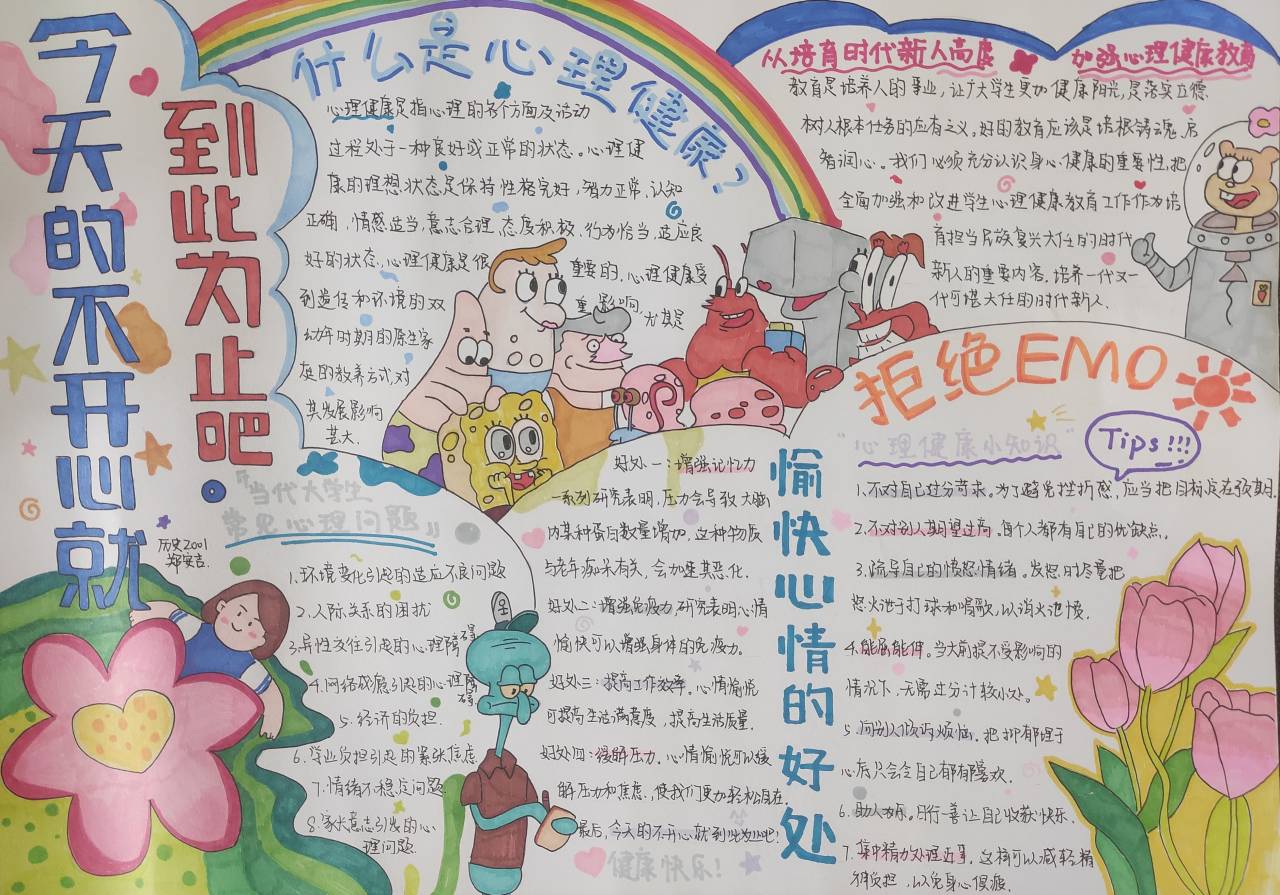 今天的不开心就
到此为止吧.
历史2001
郑安吉.
什么是心理健康?
心理健康是指心理的各个方面及活动
过程处于一种良好或正常的状态。心理健
康的理想状态是保持性格完好,智力正常,认知
正确,情感适当,意志合理,态度积极,行为恰当,适应良
好的状态,心理健康是很重要的,心理健康受
到遗传和环境的双重影响,尤其是
幼年时期的原生家
庭的教养方式,对
其发展影响
甚大.
从培育时代新人高度 加强心理健康教育
教育是培养人的事业,让广大学生更加健康阳光,是落实立德
树人根本任务的应有之义。好的教育应该是培根铸魂,启
智润心。我们必须充分认识身心健康的重要性,把
全面加强和改进学生心理健康教育工作作为培
育担当民族复兴大任的时代
新人的重要内容,培养一代又一
代可堪大任的时代新人.
『当代大学生
常见心理问题』
1.环境变化引起的适应不良问题
2.人际关系的困扰
3.异性交往引起的心理障碍
4.网络成瘾引起的心理障碍
5.经济的负担.
6.学业负担引起的紧张焦虑
7.情绪不稳定问题.
8.家长意志引发的心
理问题.
愉快心情的好处
好处一:增强记忆力
一系列研究表明,压力会导致大脑
内某种蛋白数量增加,这种物质
与老年痴呆有关,会加速其恶化.
好处二:增强免疫力,研究表明心情
愉快可以增强身体的免疫力。
好处三:提高工作效率。心情愉悦
可提高生活满意度,提高生活质量.
好处四:缓解压力。心情愉悦可以缓
解压力和焦虑,使我们更加轻松自在.
最后,今天的不开心就到此为止吧!
健康快乐!
拒绝EMO
“心理健康小知识”
Tips!!!
1.不对自己过分苛求。为了避免挫折感,应当把目标定在预期.
2.不对别人期望过高。每个人都有自己的优缺点。
3.疏导自己的愤怒情绪。发怒时尽量把
怒火泄于打球和唱歌,以消火泄愤.
4.能屈能伸。当大前提不受影响的
情况下,无需过分计较小处。
5.向别人倾诉烦恼。把抑郁埋于
心底只会令自己郁郁寡欢.
6.助人为乐,日行一善让自己收获快乐.
7.集中精力处理近事。这样可以减轻精
神负担,以免身心俱疲.